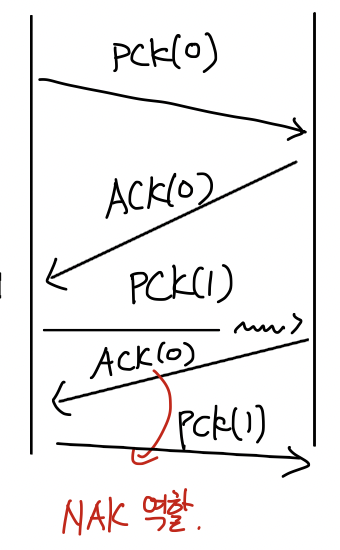 PCK(0)
ACK(0)
PCK(1)
ACK(0)
PCK(1)
NAK 역할.